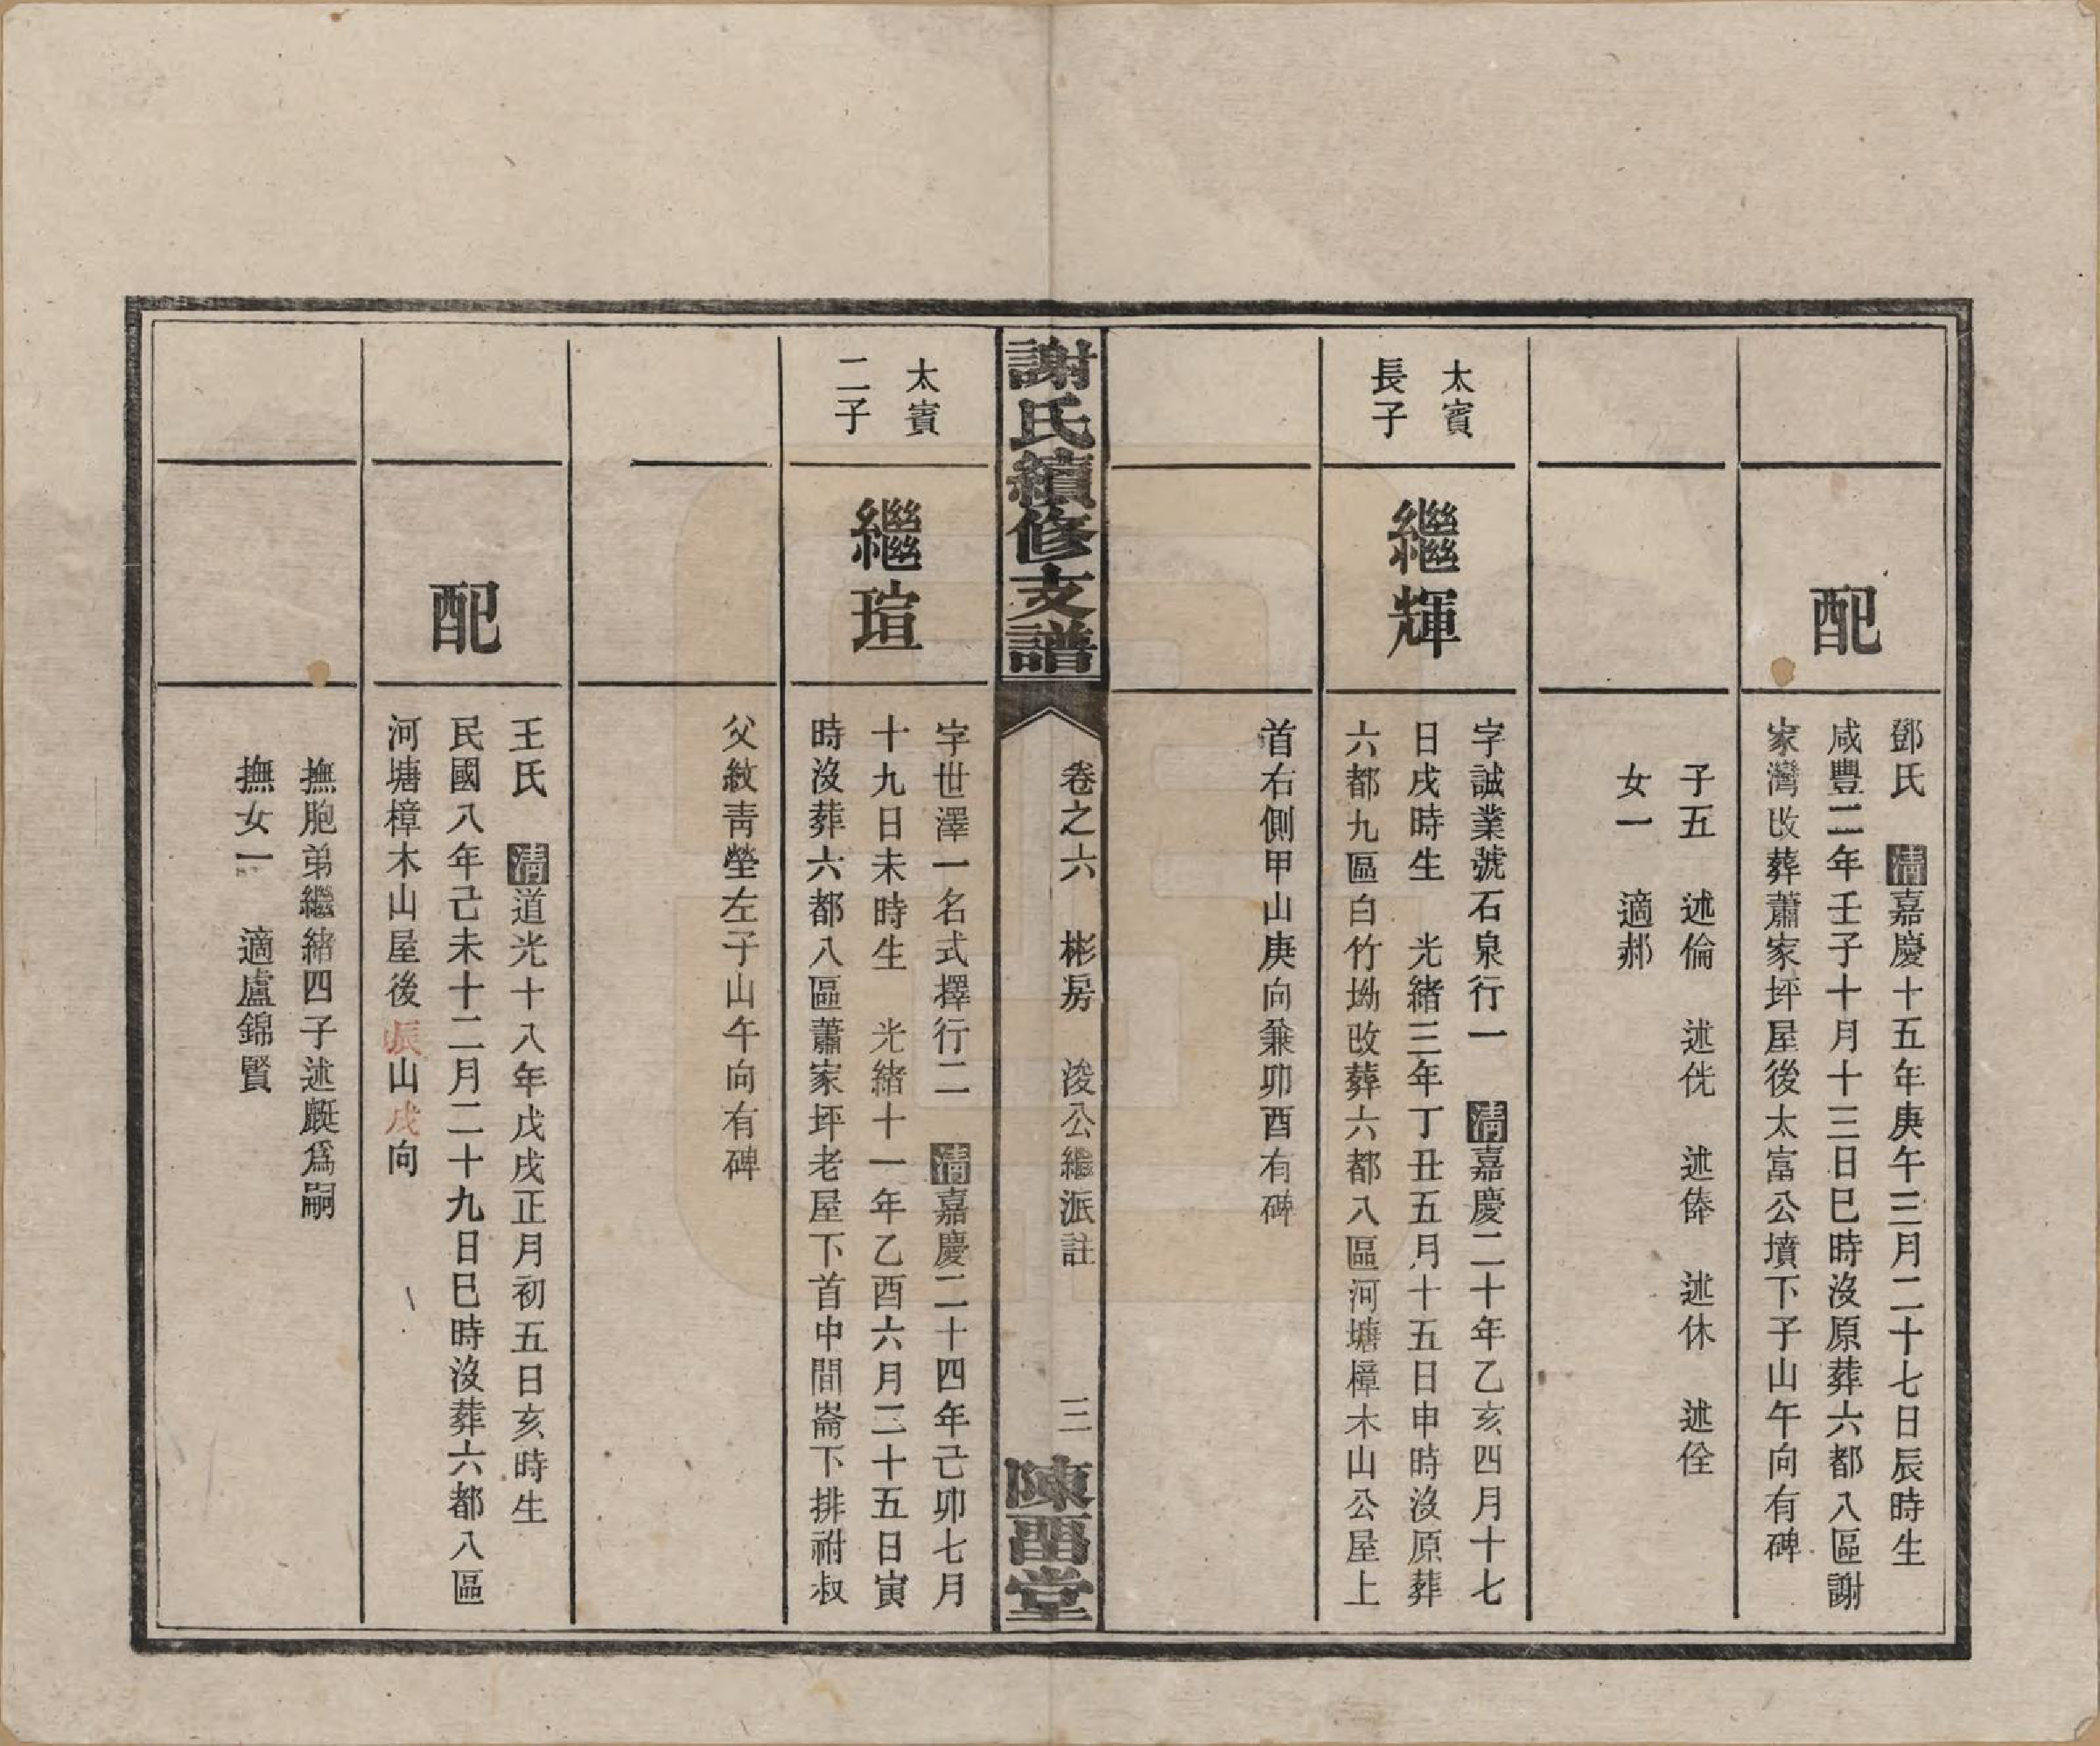 配
鄧氏　清嘉慶十五年庚午三月二十七日辰時生
咸豐二年壬子十月十三日巳時沒原葬六都八區謝
家灣改葬蕭家坪屋後太富公墳下子山午向有碑
子五　述倫　述侁　述俸　述休　述佺
女一　適郝
太賓
長子
繼輝
字誠業號石泉行一　清嘉慶二十年乙亥四月十七
日戌時生　光緒三年丁丑五月十五日申時沒原葬
六都九區白竹坳改葬六都八區河塘樟木山公屋上
首右側甲山庚向兼卯酉有碑
謝氏續修支譜
卷之六　彬房　浚公繼派註　三
陳畱堂
太賓
二子
繼瑄
字世澤一名式擇行二　清嘉慶二十四年己卯七月
十九日未時生　光緒十一年乙酉六月二十五日寅
時沒葬六都八區蕭家坪老屋下首中間崙下排祔叔
父紋靑塋左子山午向有碑
配
王氏　清道光十八年戊戌正月初五日亥時生
民國八年己未十二月二十九日巳時沒葬六都八區
河塘樟木山屋後辰山戌向
撫胞弟繼緒四子述爲嗣
撫女一　適盧錦賢